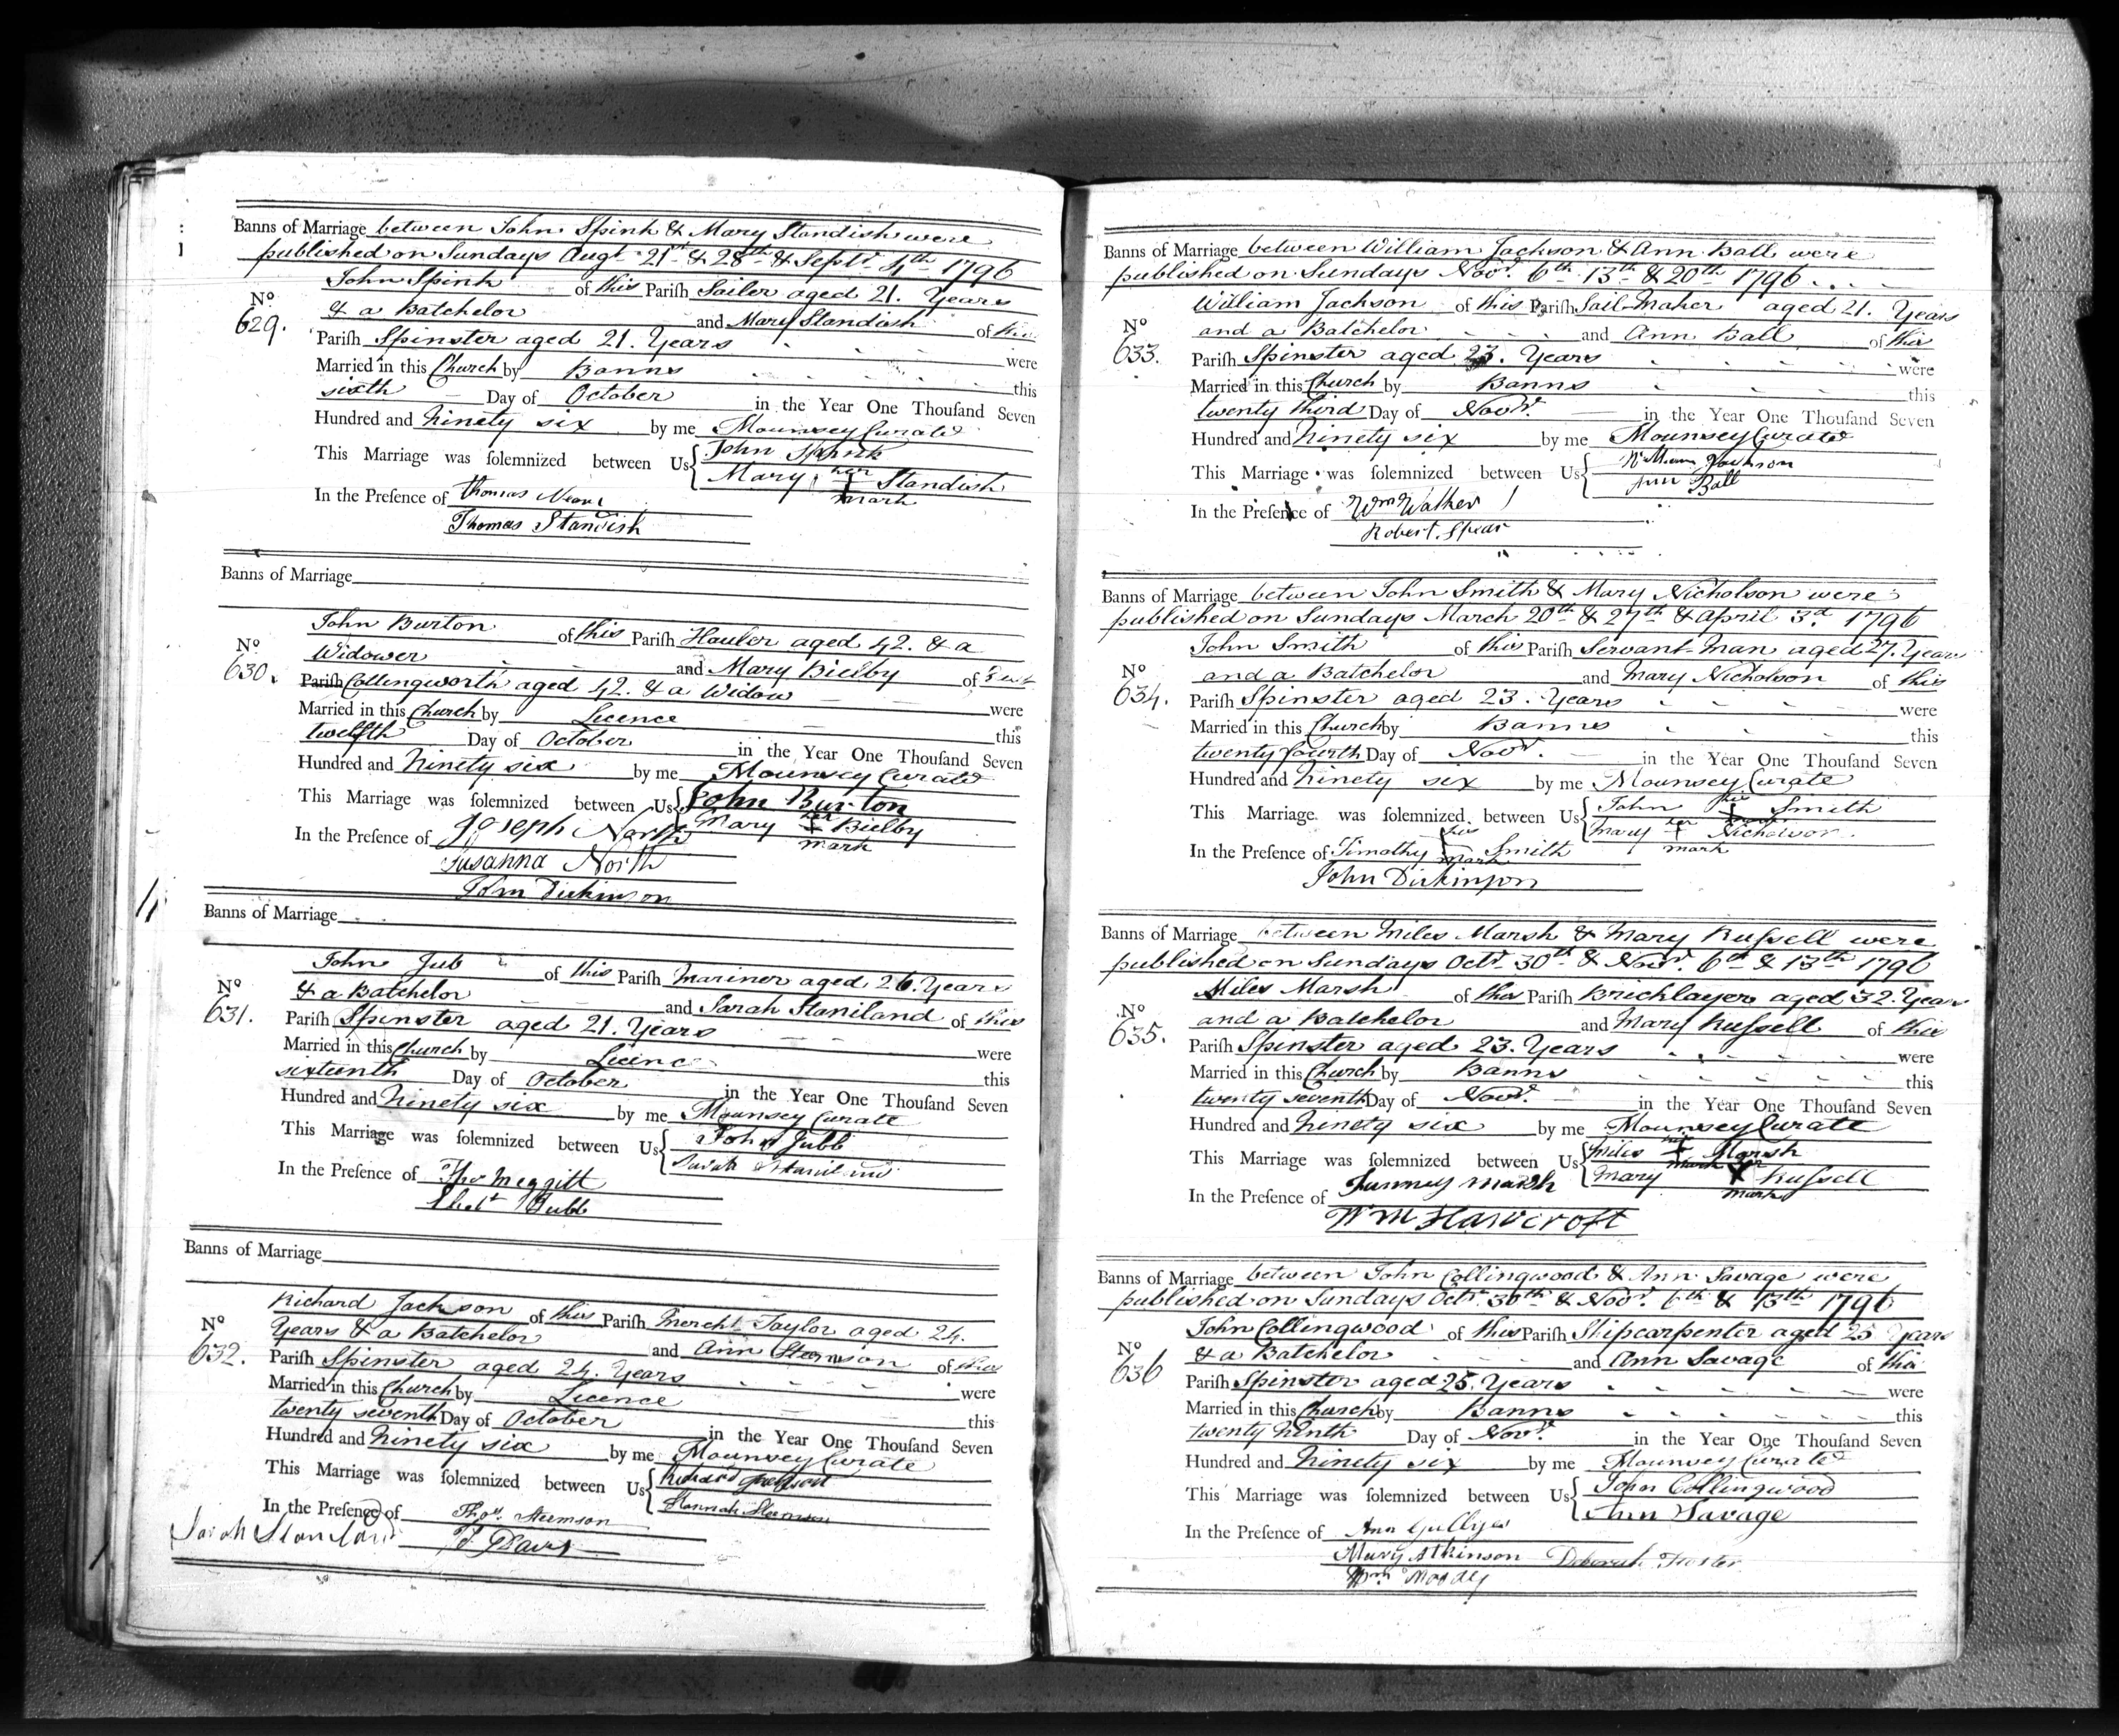 Banns of Marriage between John Spink & Mary Standish were
published on Sundays Augt. 21st & 28th & Septr. 4th 1796
John Spink of this Parish Sailer aged 21. Years
No 629. & a Batchelor and Mary Standish of this
Parish Spinster aged 21. Years were
Married in this Church by Banns this
sixth Day of October in the Year One Thousand Seven
Hundred and Ninety six by me Mounsey Curate
This Marriage was solemnized between Us John Spink
Mary her + mark Standish
In the Presence of Thomas
Thomas Standish
Banns of Marriage
John Burton of this Parish Hauler aged 42. & a
No 630. Widower and Mary Bielby of
Parish Collingworth aged 42. & a Widow were
Married in this Church by Licence this
twelfth Day of October in the Year One Thousand Seven
Hundred and Ninety six by me Mounsey Curate
This Marriage was solemnized between Us John Burton
Mary her + mark Bielby
In the Presence of Joseph North
Susanna North
John Dickinson
Banns of Marriage
John Jub of this Parish Mariner aged 26. Years
No 631. & a Batchelor and Sarah Staniland of this
Parish Spinster aged 21. Years were
Married in this Church by Licence this
sixteenth Day of October in the Year One Thousand Seven
Hundred and Ninety six by me Mounsey Curate
This Marriage was solemnized between Us John Jubb
Sarah Staniland
In the Presence of Thos Meggitt
Jubb
Banns of Marriage
Richard Jackson of this Parish Mercht. Taylor aged 24.
No 632. Years & a Batchelor and Ann Steemson of this
Parish Spinster aged 24. Years were
Married in this Church by Licence this
twenty seventh Day of October in the Year One Thousand Seven
Hundred and Ninety six by me Mounsey Curate
This Marriage was solemnized between Us Richard Jackson
Hannah Steemson
In the Presence of Thos. Steemson
Sarah
Banns of Marriage between William Jackson & Ann Ball were
published on Sundays Novr. 6th 13th & 20th 1796
William Jackson of this Parish Sail-Maker aged 21. Years
No 633. and a Batchelor and Ann Ball of this
Parish Spinster aged 23. Years were
Married in this Church by Banns this
twenty third Day of Novr. in the Year One Thousand Seven
Hundred and Ninety six by me Mounsey Curate
This Marriage was solemnized between Us William Jackson
Ann Ball
In the Presence of Wm Walker
Robert Spear
Banns of Marriage between John Smith & Mary Nicholson were
published on Sundays March 20th & 27th & April 3d. 1796
John Smith of this Parish Servant-Man aged 27. Years
No 634. and a Batchelor and Mary Nicholson of this
Parish Spinster aged 23. Years were
Married in this Church by Banns this
twenty fourth Day of Novr. in the Year One Thousand Seven
Hundred and Ninety six by me Mounsey Curate
This Marriage was solemnized between Us John his + mark Smith
Mary her + mark Nicholson
In the Presence of Timothy his + mark Smith
John Dickinson
Banns of Marriage between Miles Marsh & Mary Russell were
published on Sundays Octr. 30th & Novr. 6th & 13th 1796
Miles Marsh of this Parish Bricklayer aged 32. Years
No 635. and a Batchelor and Mary Russell of this
Parish Spinster aged 23. Years were
Married in this Church by Banns this
twenty seventh Day of Novr. in the Year One Thousand Seven
Hundred and Ninety six by me Mounsey Curate
This Marriage was solemnized between Us Miles his + mark Marsh
Mary her X mark Russell
In the Presence of Marsh
Wm Hawcroft
Banns of Marriage between John Collingwood & Ann Savage were
published on Sundays Octr. 30th & Novr. 6th & 13th 1796
John Collingwood of this Parish Shipcarpenter aged 25 Years
No 636 & a Batchelor and Ann Savage of this
Parish Spinster aged 25. Years were
Married in this Church by Banns this
twenty Ninth Day of Novr. in the Year One Thousand Seven
Hundred and Ninety six by me Mounsey Curate
This Marriage was solemnized between Us John Collingwood
Ann Savage
In the Presence of Ann
Mary Atkinson Deborah Foster
Wm Moody